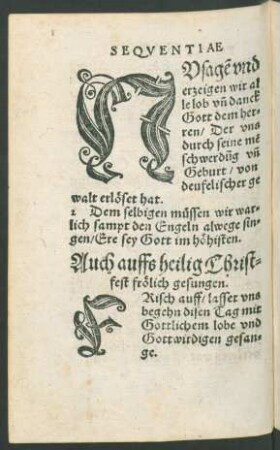 SEQVENTIAE
NVsagẽ vnd
erzeigen wir al
le lob vñ danck
Gott dem her-
ren/ Der vns
durch seine mẽ
schwerdũg vñ
Geburt/ von
deufelischer ge
walt erlöset hat.
2 Dem selbigen müssen wir war-
lich sampt den Engeln alwege sin-
gen/Ere sey Gott im höhisten.
Auch auffs heilig Christ-
fest frölich gesungen.
FRisch auff/ lasset vns
begehn disen Tag mit
Gottlichem lobe vnd
Gottwirdigen gesan-
ge.